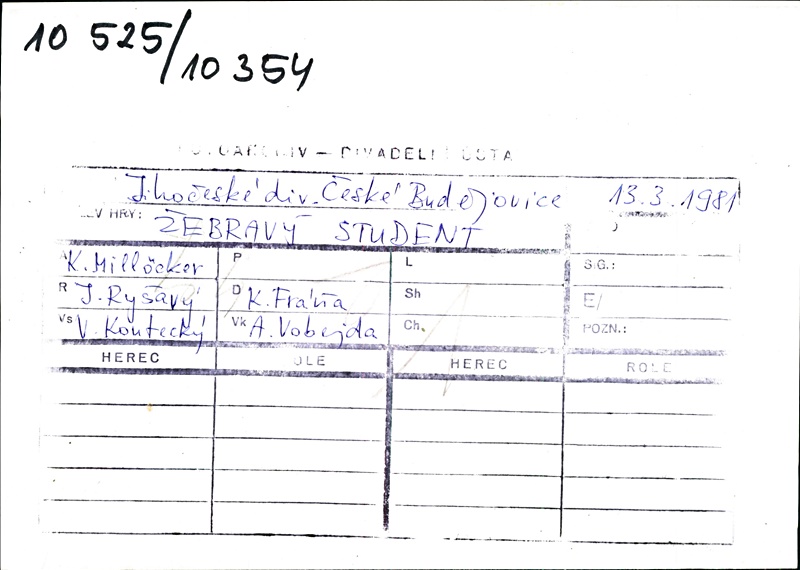 10 525/10 354
DIVADELNÍ
Jihočeské div. České Budějovice 13.3.1981
HRY: ŽEBRAVÝ STUDENT
A K. Millöcker P L SIG.:
R J. Ryšavý D K. Fráňa Sh E/
Vs V. Koutecký Vk A. Vobejda Ch. POZN.:
HEREC OLE HEREC ROLE